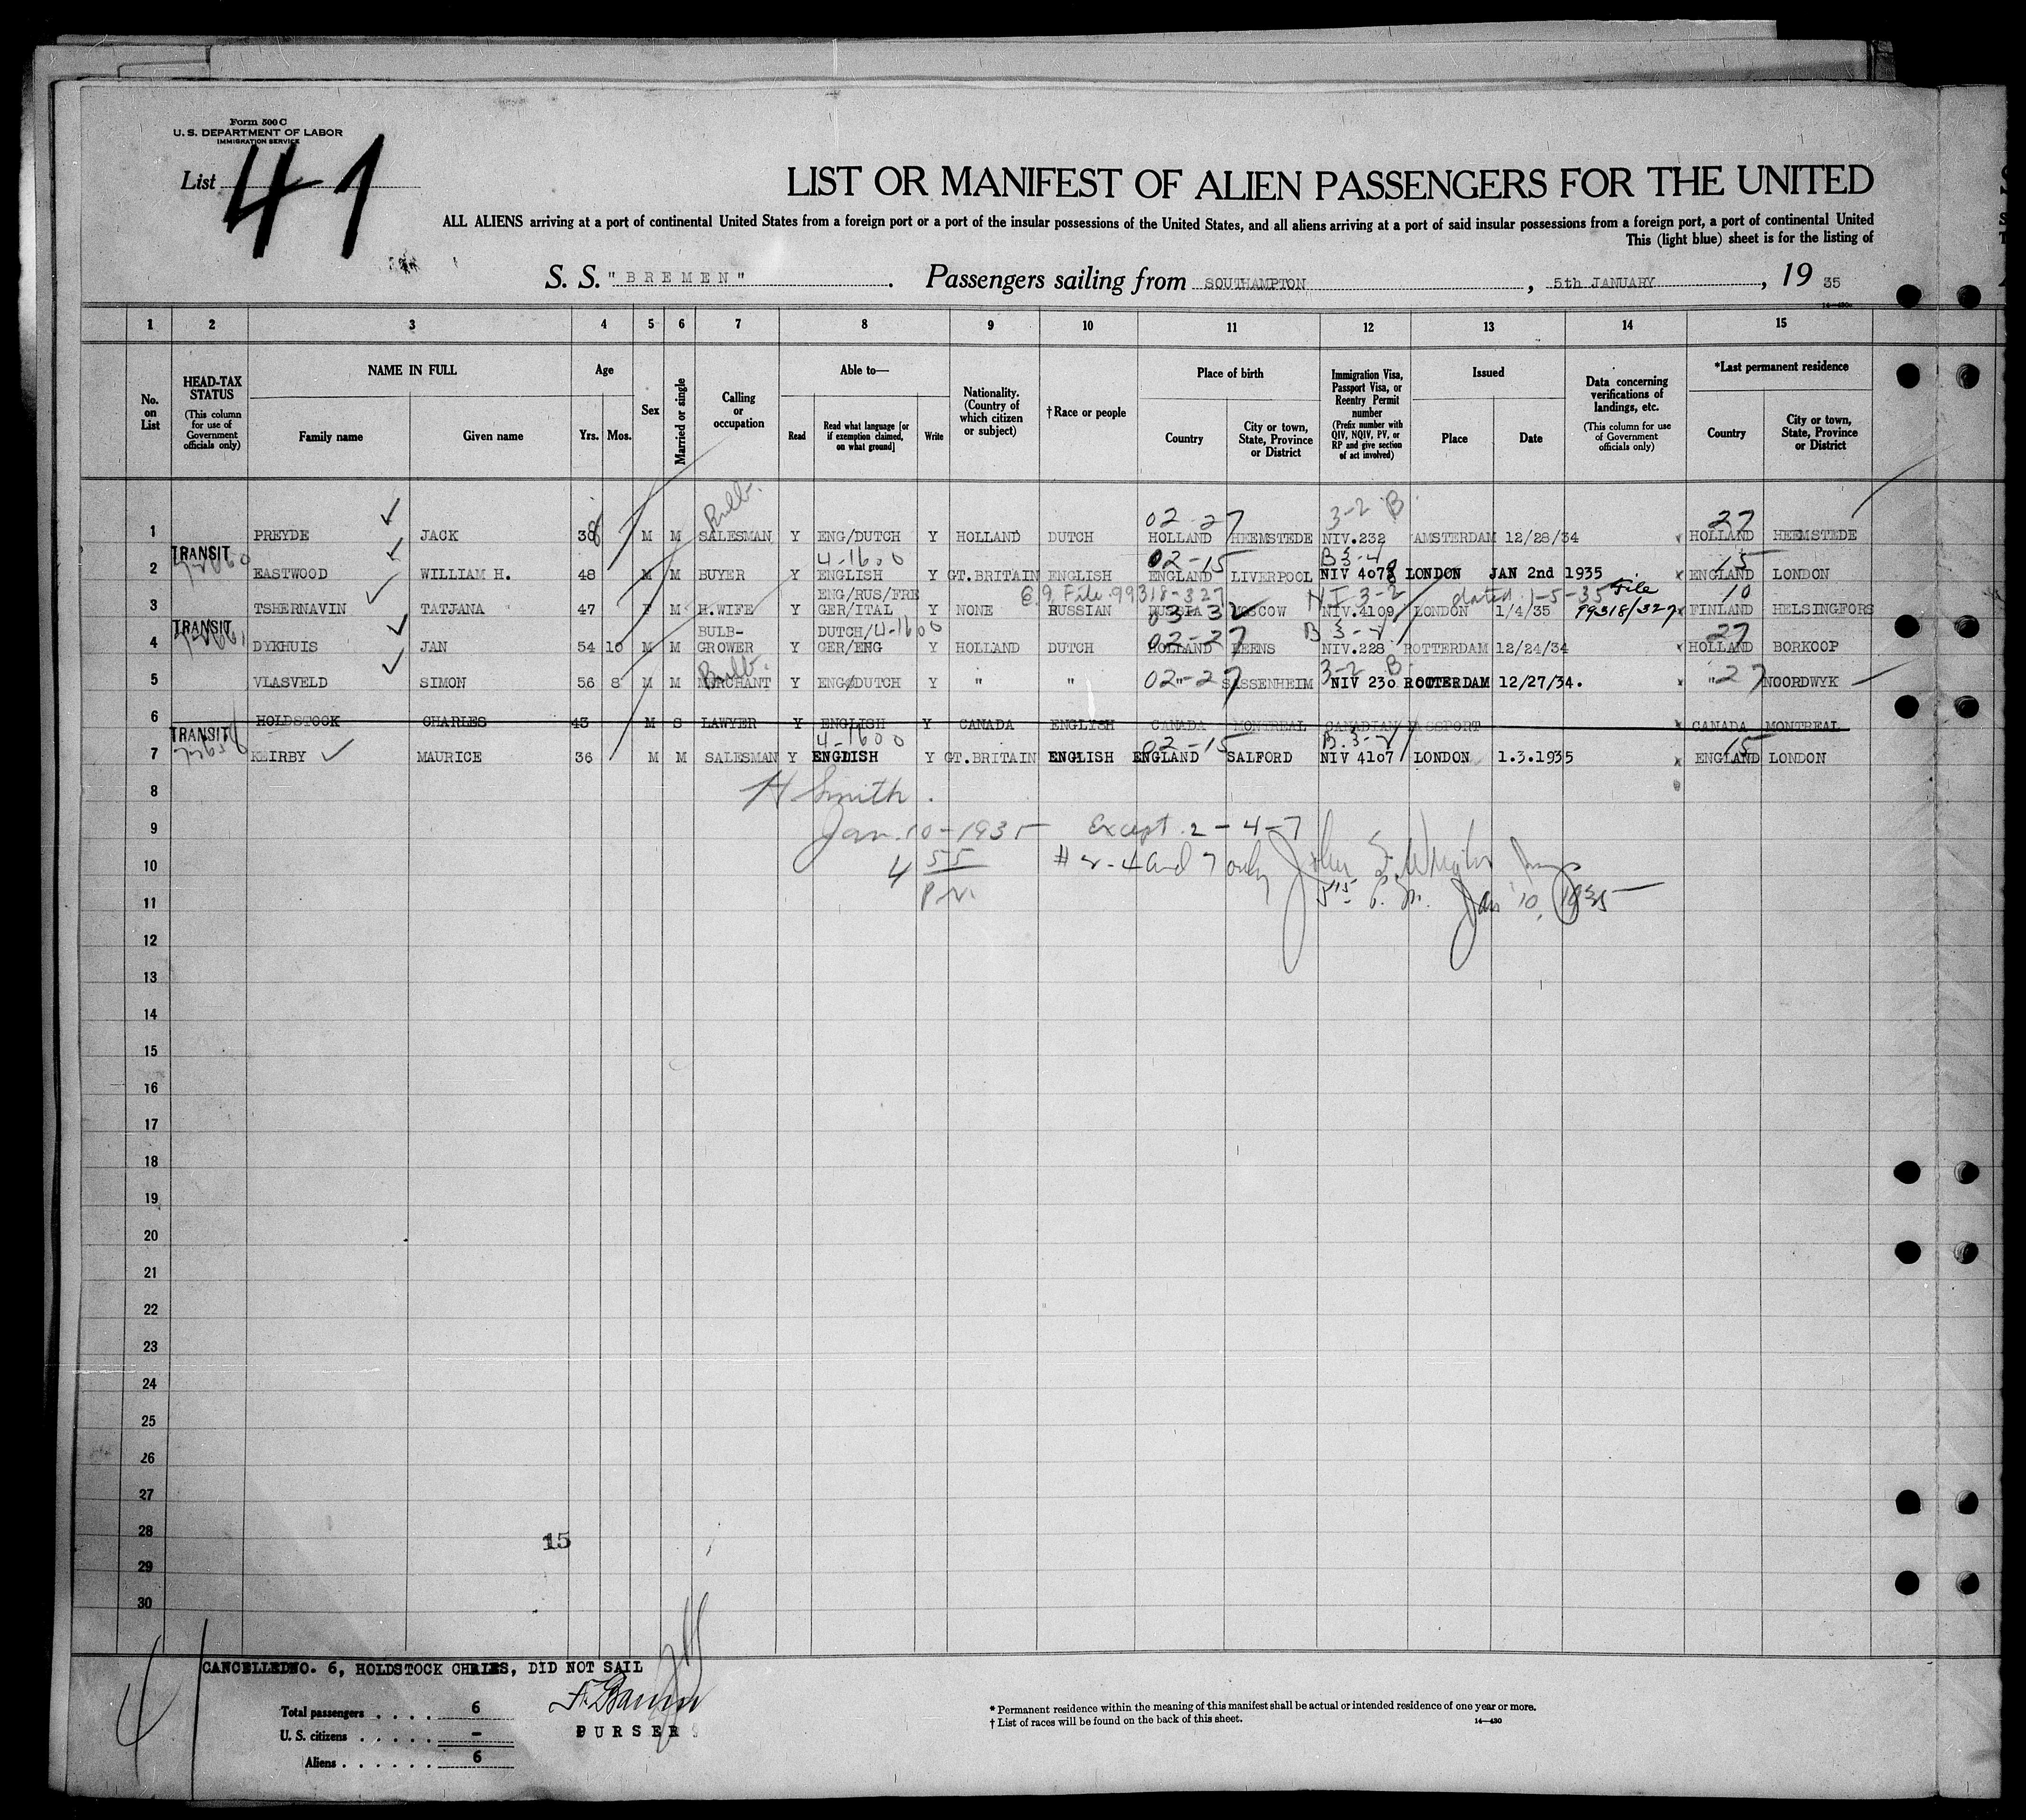 Form 500 C
U. S. DEPARTMENT OF LABOR
IMMIGRATION SERVICE
List 41
LIST OR MANIFEST OF ALIEN PASSENGERS FOR THE UNITED
ALL ALIENS arriving at a port of continental United States from a foreign port or a port of the insular possessions of the United States, and all aliens arriving at a port of said insular possessions from a foreign port, a port of continental United
This (light blue) sheet is for the listing of
S. S. "BREMEN". Passengers sailing from SOUTHAMPTON, 5th JANUARY, 19 35
1 2 3 4 5 6 7 8 9 10 11 12 13 14 15
No. on List
HEAD-TAX STATUS (This column for use of Government officials only)
NAME IN FULL Family name Given name
Age Yrs. Mos.
Sex
Married or single
Calling or occupation
Able to— Read Read what language [or if exemption claimed, on what ground] Write
Nationality. (Country of which citizen or subject)
† Race or people
Place of birth Country City or town, State, Province or District
Immigration Visa, Passport Visa, or Reentry Permit number (Prefix number with QIV, NQIV, PV, or RP and give section of act involved)
Issued Place Date
Data concerning verifications of landings, etc. (This column for use of Government officials only)
*Last permanent residence Country City or town, State, Province or District
Bulb. 02-27 3-2 B 27
1 PREYDE JACK 38 M M SALESMAN Y ENG/DUTCH Y HOLLAND DUTCH HOLLAND HEEMSTEDE NIV.232 AMSTERDAM 12/28/34 HOLLAND HEEMSTEDE
TRANSIT 4-1600 02-15 B 3-2 15
2 EASTWOOD WILLIAM H. 48 M M BUYER Y ENGLISH Y GT.BRITAIN ENGLISH ENGLAND LIVERPOOL NIV 4078 LONDON JAN 2nd 1935 ENGLAND LONDON
ENG/RUS/FRE File 99318-327 3-2 dated 1-5-35 File 10
3 TSHERNAVIN TATJANA 47 F M H.WIFE Y GER/ITAL Y NONE RUSSIAN RUSSIA MOSCOW NIV.4109 LONDON 1/4/35 99318/327 FINLAND HELSINGFORS
03-32
TRANSIT BULB- DUTCH/ 4-1600 02-27 B 3-2 27
4 DYKHUIS JAN 54 10 M M GROWER Y GER/ENG Y HOLLAND DUTCH HOLLAND HEENS NIV.228 ROTTERDAM 12/24/34 HOLLAND BORKOOP
Bulb. 02-27 3-2 B 27
5 VLASVELD SIMON 56 8 M M MERCHANT Y ENG/DUTCH Y " " " SASSENHEIM NIV 230 ROTTERDAM 12/27/34. " NOORDWYK
6 HOLDSTOCK CHARLES 43 M S LAWYER Y ENGLISH Y CANADA ENGLYSH CANADA MONTREAL CANADIAN PASSPORT CANADA MONTREAL
TRANSIT 4-1600 02-15 B.3-2 15
7 KEIRBY MAURICE 36 M M SALESMAN Y ENGLISH Y GT.BRITAIN ENGLISH ENGLAND SALFORD NIV 4107 LONDON 1.3.1935 ENGLAND LONDON
8 H Smith.
9 Jan. 10-1935 Except 2-4-7
10 4 55 # 2-4 and 7 only
P.M. 5 15 P. M. Jan 10, 1935
11
12
13
14
15
16
17
18
19
20
21
22
23
24
25
26
27
28 15
29
30
CANCELLED NO. 6, HOLDSTOCK CHRLES, DID NOT SAIL
Total passengers . . . . 6
U. S. citizens . . . . . –
Aliens . . . . . . 6
PURSER
* Permanent residence within the meaning of this manifest shall be actual or intended residence of one year or more.
† List of races will be found on the back of this sheet. 14—430
41